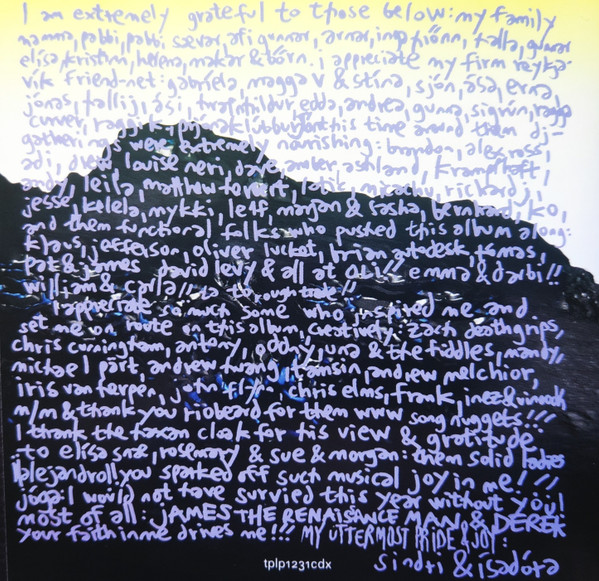 I am extremely grateful to those below: my family
mamma, pabbi, pabbi sævar, afi gunnar, arnar, ingi þiónn, halla, gunnar
elísa, kristín, helena, makar & börn. i appreciate my firm reykja-
vík friend-net: gabríela, magga v & stína, sjón, ása, erna,
jónas, halli j, ási, hildur, edda, andrea, gunna, sigrún, ragga
curver, raggi this time around them dj-
gatheri were extremely nourishing: brandon, aless, ross,
adi, drew louise neri, dave, amler ashland, krampfhaft,
andy, leila, matthew herbert, lotic, micachu, richard j,
jesse, kelela, mykki, leaf, marjan & sasha, bernhard, ko,
and them functional folks who pushed this album along:
klaus, jefferson, oliver lucket, brian autodesk, tomas,
pat & james david levy & all at OLI! emma & darbi!!
william & carla // rough trade!!
I appreciate so much some who inspired me and
set me on route on this album, creatively: zach deathgrips,
chris cunningham, antony, oddný, una & the fiddles, mandy,
michael part, andrew huang, tamsin, andrew melchior,
iris van herpen, john chris elms, frank, inez & vinoodh
m/m & thank you riobeard for them www song nuggets!!!
I thank the haxan cloak for his view & gratitude
to elísa snæ, rosemary & sue & morgan: them solid ladies
alejandro!! you sparked off such musical joy in me! //
jónó: I would not have survied this year without you!
most of all: JAMES THE RENAISANCE MAN & DEREK
your faith in me drives me!!! MY UTTERMOST PRIDE & JOY:
sindri & ísadóra
tplp1231cdx